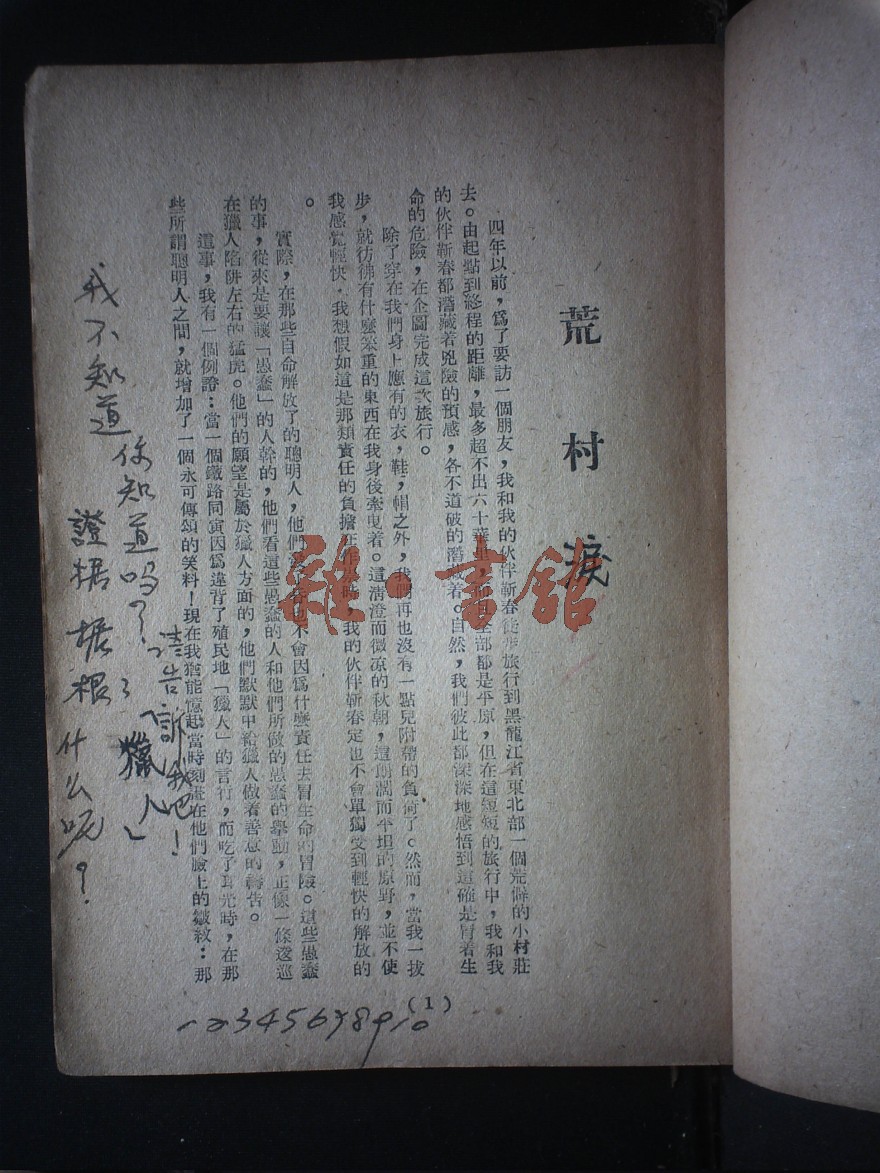 荒村淚
四年以前，爲了要訪一個朋友，我和我的伙伴靳春徒步旅行到黑龍江省東北部一個荒僻的小村莊
去。由起點到終程的距離，最多超不出六十華里，而且全部都是平原，但在這短短的旅行中，我和我
的伙伴靳春都潛藏着兇險的預感，各不道破的潛藏着。自然，我們彼此都深深地感悟到這確是冒着生
命的危險，在企圖完成這次旅行。
除了穿在我們身上應有的衣，鞋，帽之外，我們再也沒有一點兒附帶的負荷了。然而，當我一拔
步，就彷彿有什麽笨重的東西在我身後牽曳着。這清澄而微凉的秋朝，這朗濶而平坦的原野，並不使
我感覺輕快。我想假如這是那類責任的負擔在作祟時，我的伙伴靳春定也不會單獨受到輕快的解放的
。
實際，在那些自命解放了的聰明人，他們永不會因爲什麽責任去冒生命的冒險。這些愚蠢
的事，從來是要讓「愚蠢」的人幹的，他們看這些愚蠢的人和他們所做的愚蠢的舉動，正像一條逡巡
在獵人陷阱左右的猛虎。他們的願望是屬於獵人方面的，他們默默中給獵人做着善意的禱告。
這事，我有一個例證：當一個鐵路同寅因爲違背了殖民地「獵人」的言行，而吃了耳光時，在那
些所謂聰明人之間，就增加了一個永可傳頌的笑料！現在我猶能憶起當時刻畫在他們臉上的皺紋：那
(1)
請告訴我吧！
我不知道你知道吗？「獵人」
證据据根什么呢？
一二345678910
雜·書館